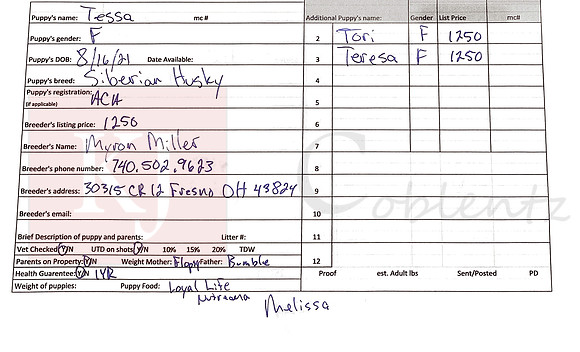 Puppy's name: Tessa mc#
Additional Puppy's name: Gender List Price mc#
Puppy's gender: F
2 Tori F 1250
Puppy's DOB: 8/16/21 Date Available:
3 Teresa F 1250
Puppy's breed: Siberian Husky
4
Puppy's registration:
(if applicable) ACA
5
Breeder's listing price: 1250
6
Breeder's Name: Myron Miller
7
Breeder's phone number: 740.502.9623
8
Breeder's address: 30315 CR 12 Fresno OH 43824
9
Breeder email:
10
Brief Description of puppy and parents: Litter #:
11
Vet Checked Y/N UTD on shots Y/N 10% 15% 20% TDW
Parents on Property: Y/N Weight Mother: Flopy Father: Bumble
12
Health Guarantee: Y/N 1YR
Proof est. Adult lbs Sent/Posted PD
Weight of puppies: Puppy Food: Loyal Life
Melissa
KJ Coblentz